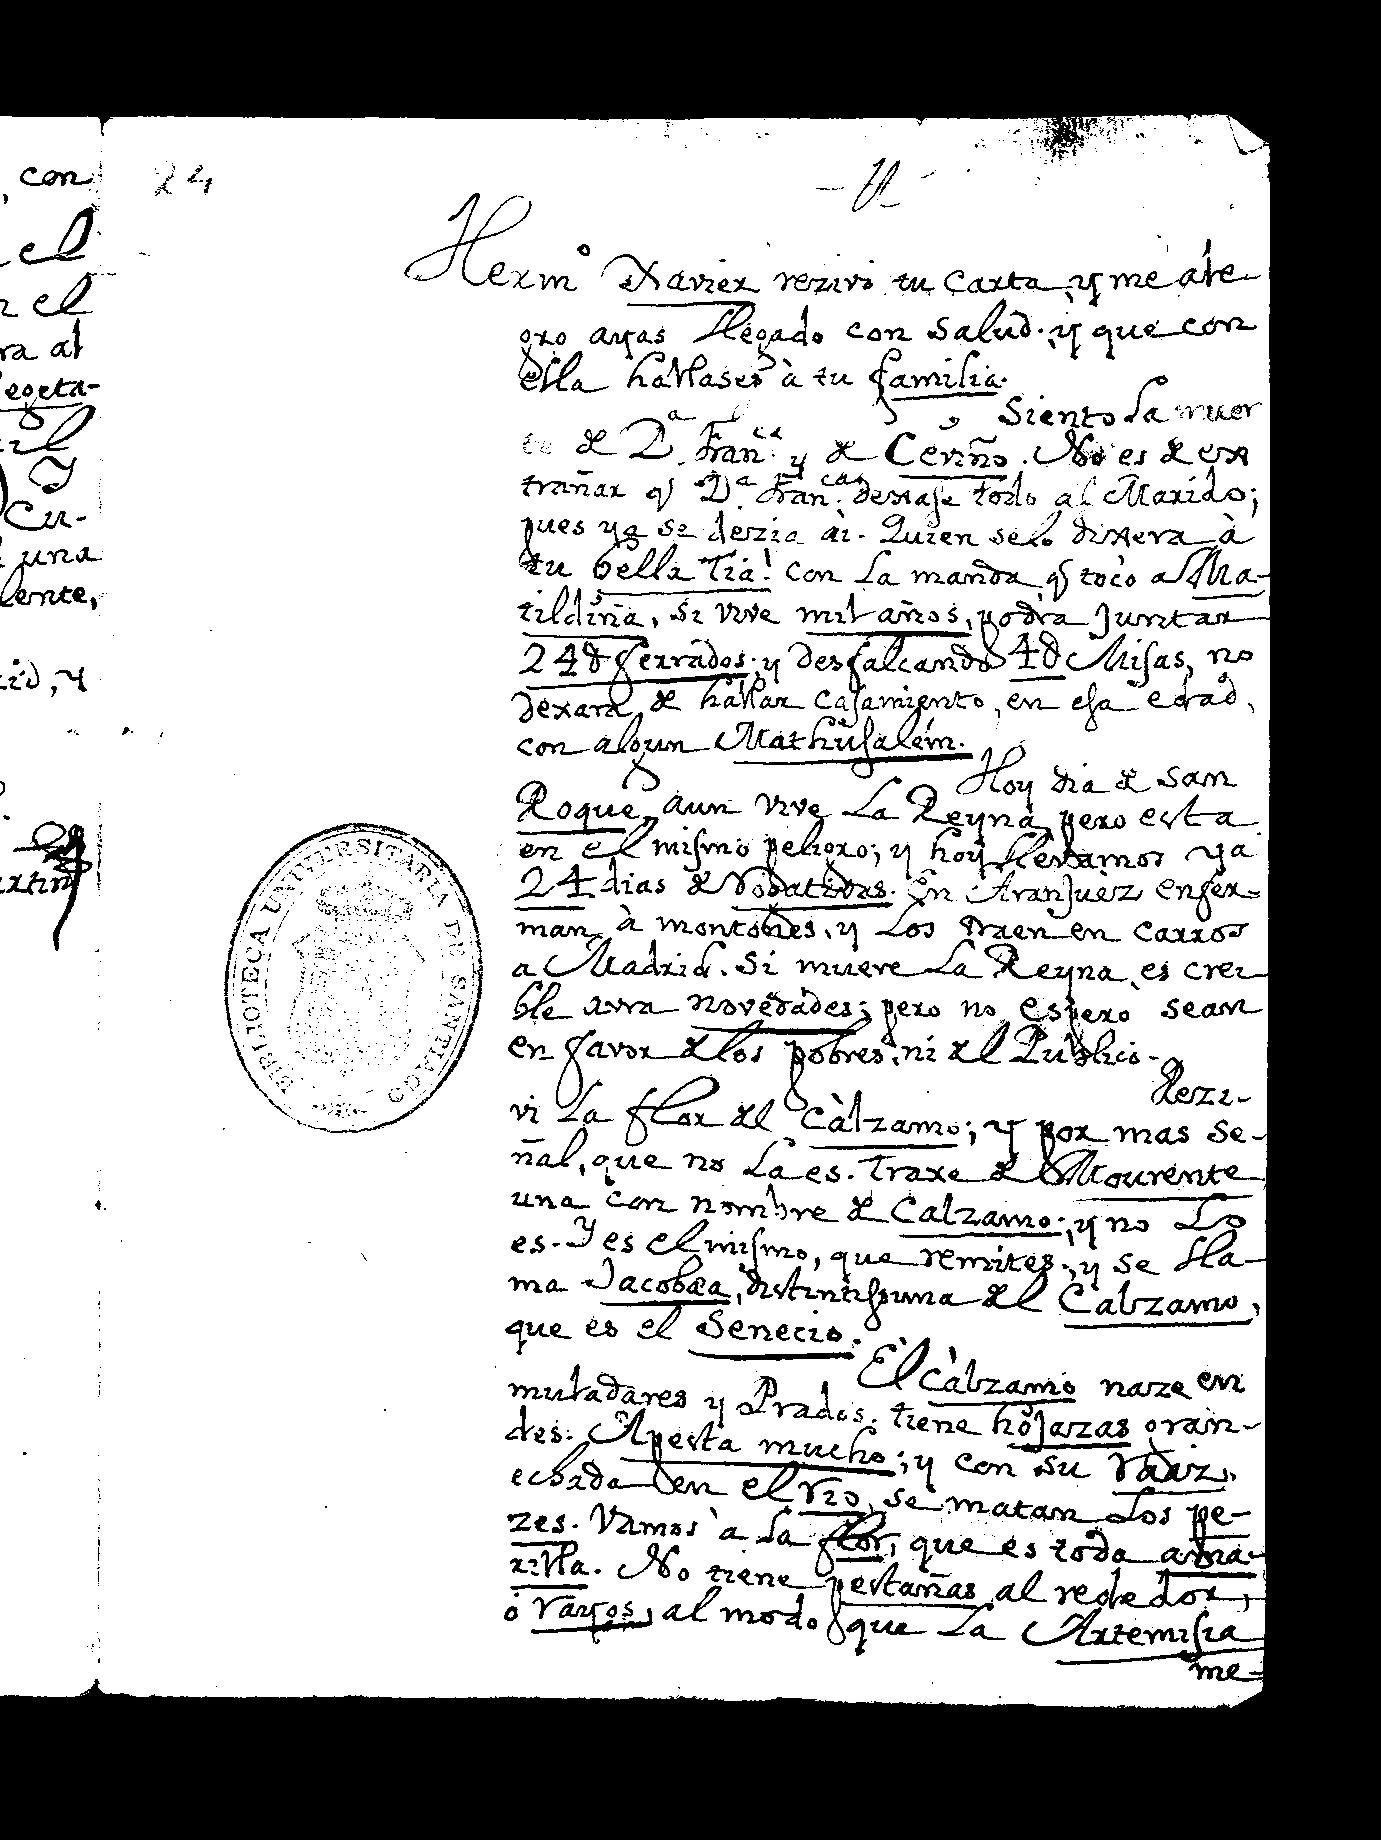 , con
el
n el
ra al
egeta-
il
) y
Cu-
una
lente,
rid, y
rtin
24
Hermº Xavier rezivi tu Carta, y me ale-
gro ayas llegado con salud. y que con
ella hallases à tu familia.
Siento la muer
te de Dª Franca. y de Ceviño. No es de ex
trañar q Dª Franca. dexase todo al Marido;
pues ya se dezia ài. Quien se lo dixera à
tu bella Tia! con la manda q tocò a Ma-
tildiña, si vive mil años, podra juntar
24d ferrados; y desfalcando 4d Misas, no
dexara de hallar casamiento, en esa edad,
con algun Mathusalém.
Hoy dia de San
Roque, aun vive la Reyna, pero esta
en el mismo peligro; y hoy llevamos ya
24 dias de Rogativas. En Aranjuèz enfer-
man à montones, y los traen en carros
a Madrid. Si muere la Reyna, es crei
ble avra novedades; pero no espero sean
en favor de los pobres, ni del Publico.
Rezi-
vi la flor del Càlzamo; y por mas se-
ñal, que no la es. Traxe de Mourente
una con nombre de Calzamo; y no lo
es. Y es el mismo, que remites; y se lla-
ma Jacobæa, distintissima del Calzamo,
que es el Senecio.
El Càlzamo naze en
muladares y Prados. tiene hojazas gran-
des. Apesta mucho; y con su raiz,
echada en el rio, se matan los pe-
zes. Vamos à la flor, que es toda ama-
rilla. No tiene pestañas al rededor,
ò rayos, al modo que la Artemisia
me-
BIBLIOTECA UNIVERSITARIA DE SANTIAGO